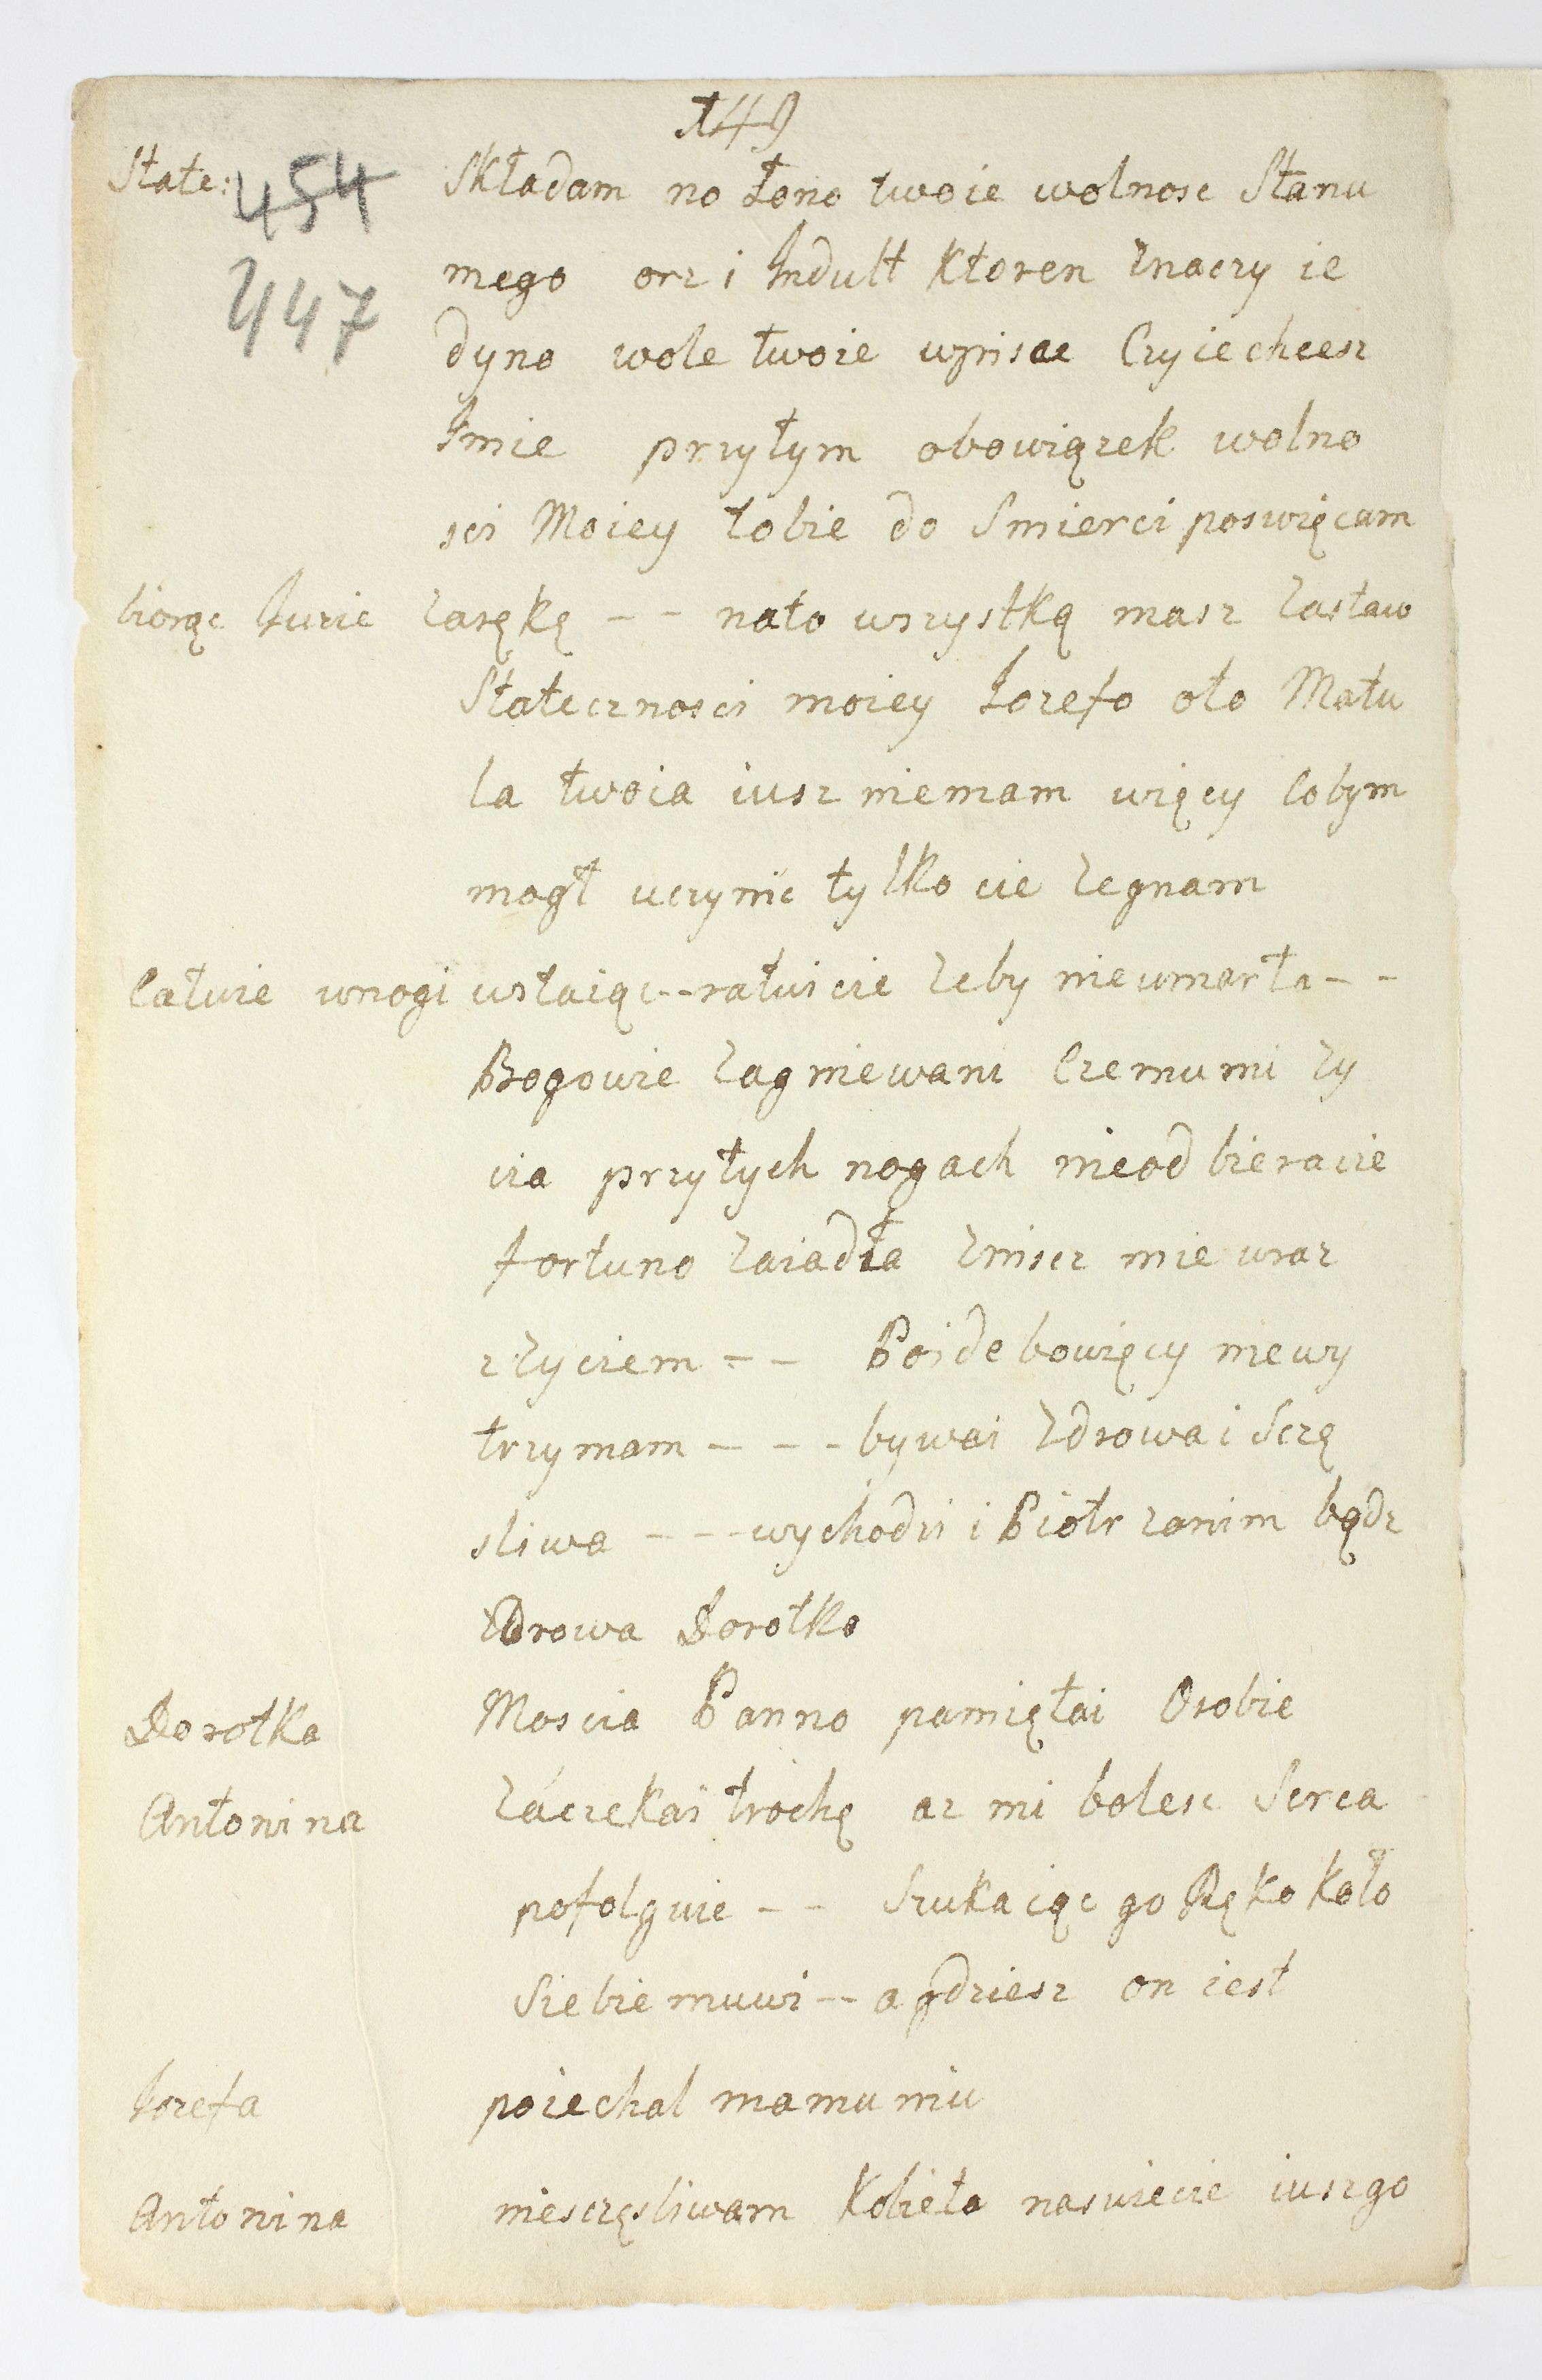 149
State: 454 Składam no Łono twoie wolnosc Stanu
447
mego orz i Indult Ktoren Znaczy ie
dyno wole twoie wpisac Czyie chcesz
Imie przytym obowiązek wolno
sci Moiey tobie do Smierci poswięcam
biorąc Iuzie Zarękę - - nato wszystką masz Zastaw
Statecznosci moiey Iozefo oto Matu
la twoia iusz niemam więcy Cobym
mogł uczynic tylko cie Zegnam
Catuie wnogi wstaiąc -- ratuicie Zeby nieumarła - -
Bogowie Zagniewani Czemumi Zy
cia przytych nogach nieodbieracie
fortuno Zaiadła Znisz mie wraz
z Zyciem - - Poide bowięcy niewy
trzymam - - - bywai Zdrowa i Sczę
sliwa - - - wychodzi i Piotr zanim bądz
Zdrowa Dorotko
Dorotka Moscia Panno pamiętai Osobie
Antonina Zaczekai trochę az mi bolesc Serca
pofolguie - - Szukaiąc go Ręko koło
Siebie muwi -- a gdziesz on iest
Iozefa poiechal mamuniu
Antonina niesczęsliwam Kobieta naswiecie iuszgo